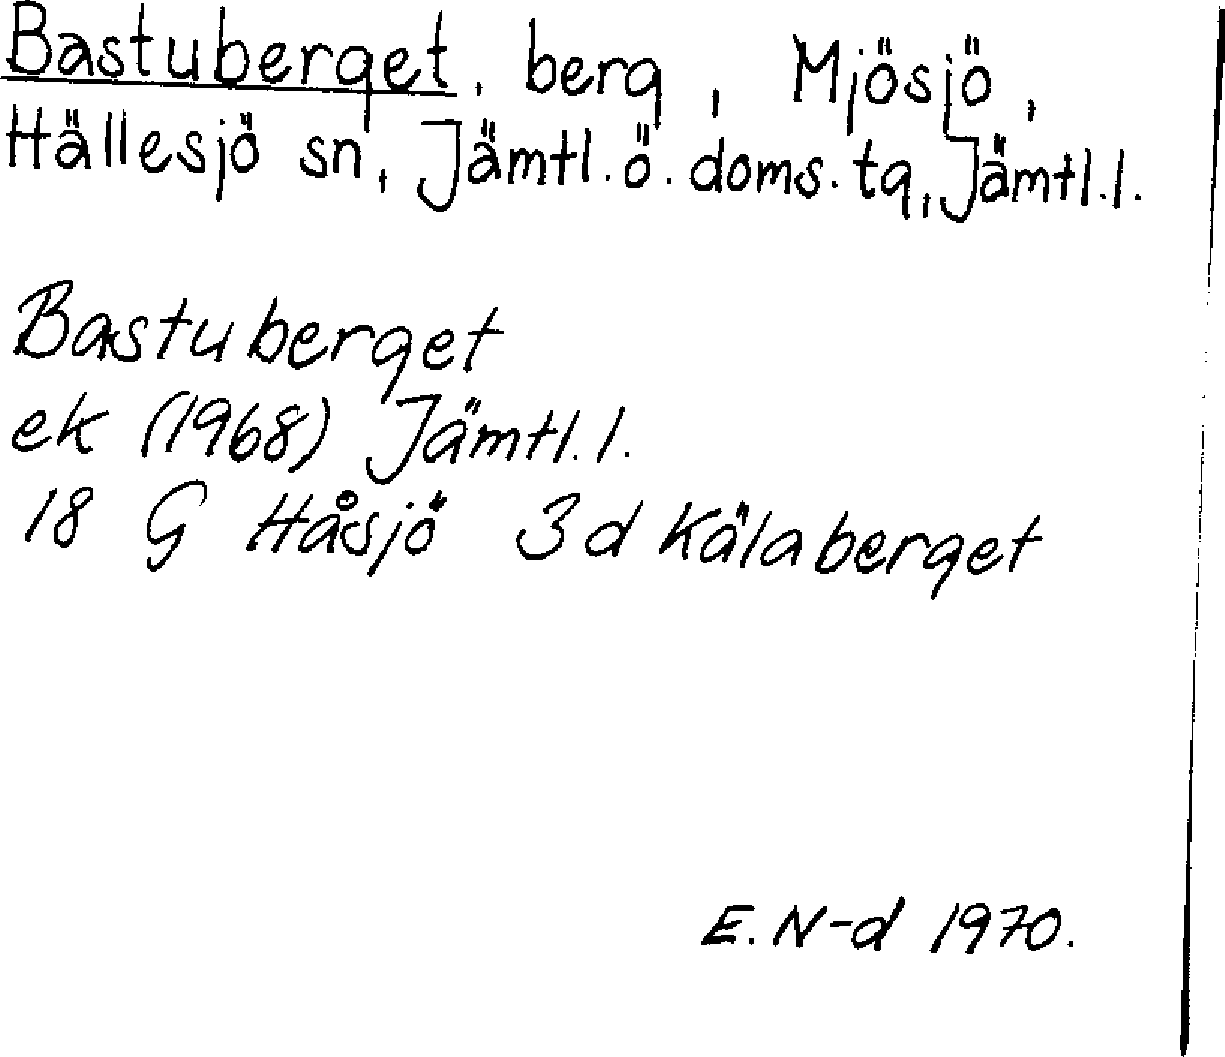 Bastuberget, berg, Mjösjö,
Hällesjö sn, Jämtl.ö.doms.tg, Jämtl.l.
Bastuberget
ek (1968) Jämtl.l.
18 G Håsjö 3d Kälaberget
E.N-d 1970.